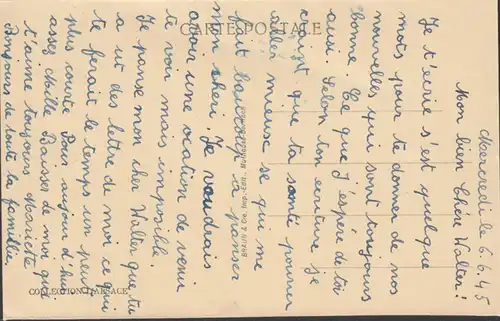 CARTE POSTALE
Mercredi le 6.6.45
Mon bien Chère Walter!
Je t'ecrie s'est quelque
mots pour te donner de nos
nouvelles qui sont toujours
bonne Ce que J'espére de toi
ausi. Selon ton ecriture je
croi que ta santé pourrai
aller mieuse se qui me
fait baucoup a penser
mon cheri. Je voudrais
avoir une ocation de venir
te voir mais imposible.
Je panse mon cher Walter que tu
a ut des lettre de moi ce qui
te ferait le temps un peut
plus courte Pour aujourd'hui
assez Mille Baisser de moi qui
t'aime toujours Mariete
Bonjours de toute la famille.
BRAUN & Cie, Imp.-Édit., MULHOUSE-DORNACH
COLLECTION D'ALSACE